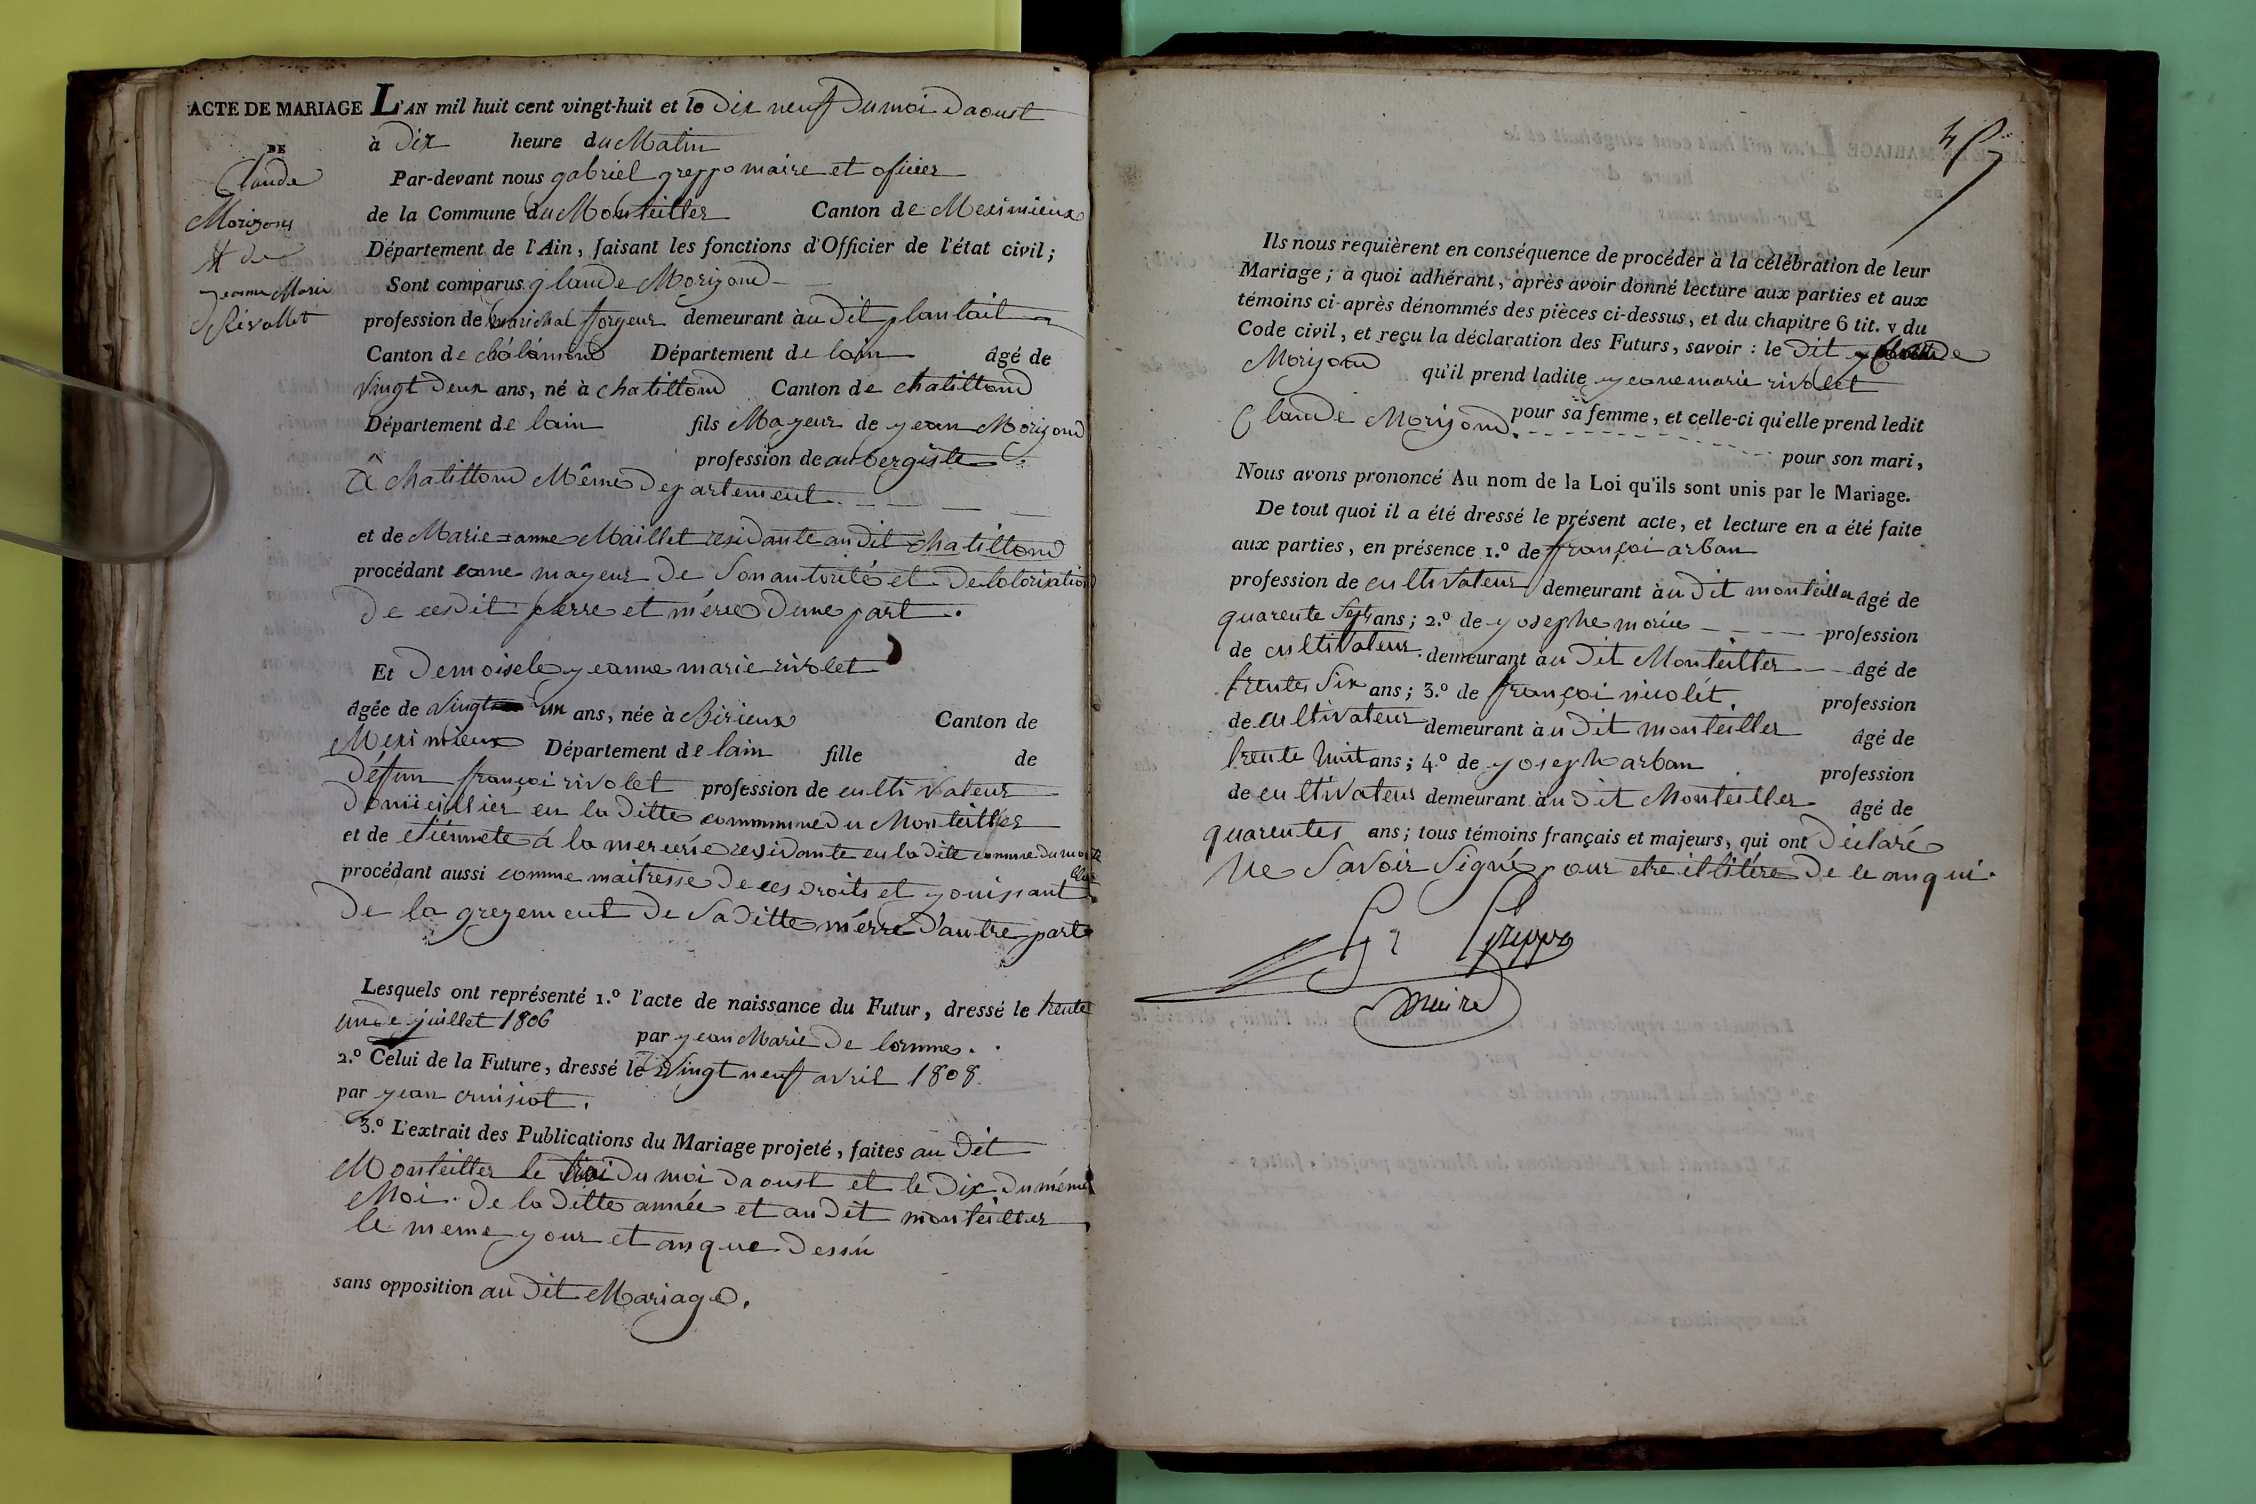 ACTE DE MARIAGE L'AN mil huit cent vingt-huit et le Dix neuf Du moi Daoust
DE
Claude
Morizons
Et de
Jeanne Marie
Rivollet
à Dix heure du Matin
Par-devant nous gabriel greppo maire et oficier
de la Commune du Monteiller Canton de Meximieux
Département de l'Ain, faisant les fonctions d'Officier de l'état civil;
Sont comparus glaude Morizond
profession de marichal forgeur demeurant à u Dit plantait
Canton de chalamond Département de lain âgé de
vingt Deux ans, né à chatillond Canton de chatillond
Département de lain fils Mayeur de yean Morizond
profession de aubergiste
A chatillond Même Departement
et de Marie anne Maillet residante au Dit chatillond
procédant come mayeur De Son autorité et De
De ces Dit perre et mérre Dune part.
Et Demoisele yeanne marie rivolet
âgée de vingt un ans, née à Birieux Canton de
Meximieux Département de lain fille de
Déffun françoi rivolet profession de cultivateur
en la Ditte commune Du Monteiller
et de etiénnete á la mercerie residante en la Ditte comune du monte
procédant aussi comme maitresse De ces Droits et youissant
De la greyement De Sa Ditte mérre D'autre parte
Lesquels ont représenté 1.º l'acte de naissance du Futur, dressé le trente
un De juillet 1806 par yean Marie De lorme.
2.º Celui de la Future, dressé le vingt neuf avril 1808.
par yean cruisiat.
3.º L'extrait des Publications du Mariage projeté, faites au Dit
Monteiller le troi Du moi Daoust et le Dix Du même
Moi De la Ditte année et au Dit monteiller
le meme your et an que Dessu
sans opposition au Dit Mariage.
45
Ils nous requièrent en conséquence de procéder à la célébration de leur
Mariage; à quoi adhérant, après avoir donné lecture aux parties et aux
témoins ci-après dénommés des pièces ci-dessus, et du chapitre 6 tit. v du
Code civil, et reçu la déclaration des Futurs, savoir: le Dit
Morizond qu'il prend ladite yeane marie rivolet
pour sa femme, et celle-ci qu'elle prend ledit
Claude Morizond. pour son mari,
Nous avons prononcé Au nom de la Loi qu'ils sont unis par le Mariage.
De tout quoi il a été dressé le présent acte, et lecture en a été faite
aux parties, en présence 1.º de françoi arban
profession de cultivateur demeurant à u Dit monteiller âgé de
quarente Sept ans; 2.º de yosephe morin profession
de cultivateur demeurant à u Dit Monteiller âgé de
trentes Six ans; 3.º de françoi nicolét profession
de cultivateur demeurant à u Dit monteiller âgé de
trente huit ans; 4.º de yoseph arban profession
de cultivateur demeurant à u Dit Monteiller âgé de
quarentes ans; tous témoins français et majeurs, qui ont Déclaré
Ne Savoir Signé pour etre illitére De ce an qui.
Greppo
maire